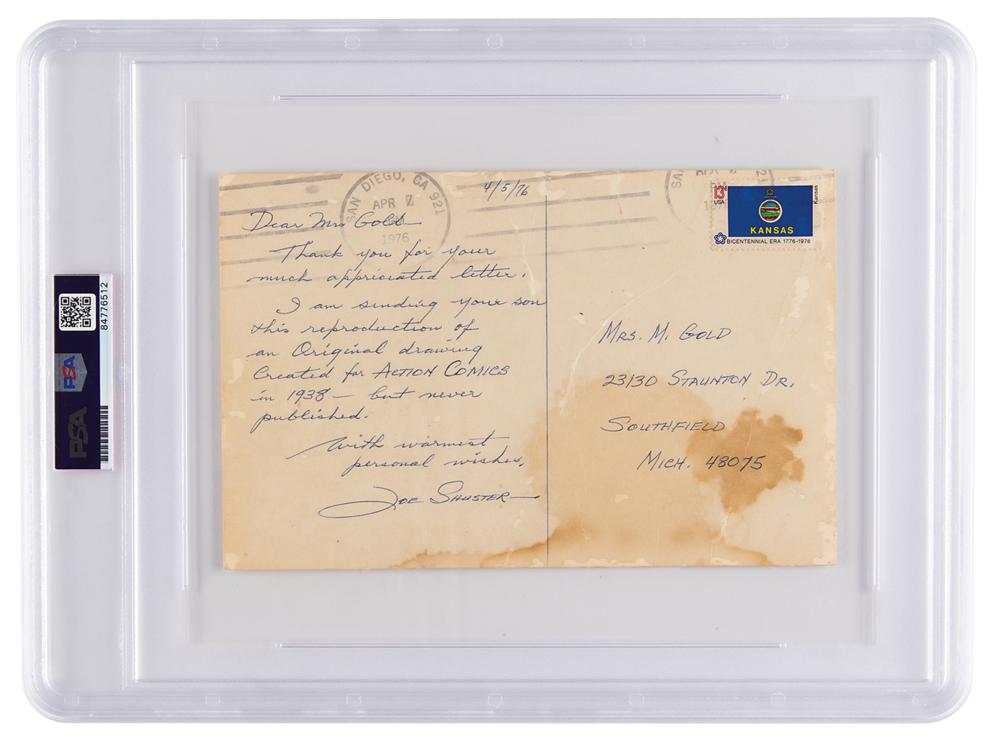 SAN DIEGO, CA 921
APR 7
1976
4/5/76
Dear Mrs Gold
Thank you for your
much appriciated letter.
I am sending your son
this reproduction of
an Original drawing
Created for ACTION COMICS
in 1938 — but never
published.
With warmest
personal wishes,
JOE SHUSTER
SA
13¢
USA
Kansas
KANSAS
BICENTENNIAL ERA 1776-1976
MRS. M. GOLD
23130 STAUNTON DR.
SOUTHFIELD
MICH. 48075
84776512
PSA
PSA